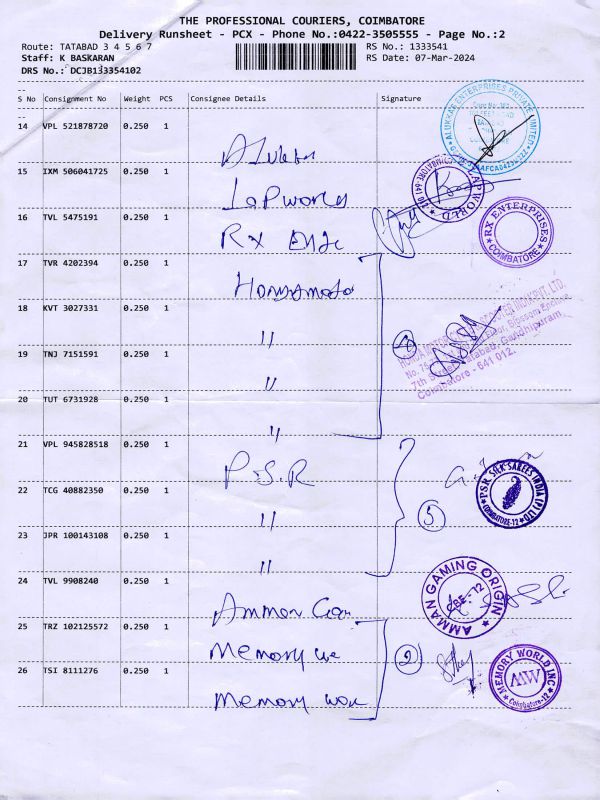 THE PROFESSIONAL COURIERS, COIMBATORE
Delivery Runsheet - PCX - Phone No.:0422-3505555 - Page No.:2
Route: TATABAD 3 4 5 6 7
RS No.: 1333541
Staff: K BASKARAN
RS Date: 07-Mar-2024
DRS No.: DCJB133354102
S No Consignment No Weight PCS Consignee Details Signature
14 VPL 521878720 0.250 1
ALUKKAS ENTERPRISES PRIVATE LIMITED
15 IXM 506041725 0.250 1 Lapworld
LAPWORLD
16 TVL 5475191 0.250 1 RX
RX ENTERPRISES COIMBATORE
17 TVR 4202394 0.250 1
18 KVT 3027331 0.250 1 "
4
7th Street, Tatabad, Gandhipuram,
Coimbatore - 641 012.
19 TNJ 7151591 0.250 1 "
20 TUT 6731928 0.250 1 "
21 VPL 945828518 0.250 1 P.S.R
PSR SILK SAREES INDIA (P) LTD COIMBATORE-12
22 TCG 40882350 0.250 1 "
23 JPR 100143108 0.250 1 "
24 TVL 9908240 0.250 1 Ammon
AMMAN GAMING ORIGIN CBE - 12
25 TRZ 102125572 0.250 1 Memory
26 TSI 8111276 0.250 1 Memory
MEMORY WORLD INC MW Coimbatore-12